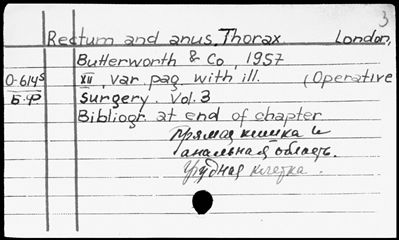 3
Rectum and anus. Thorax. London,
Butterworth & Co, 1957
O-614s XII, var. pag. with ill. (Operative
Б.ф Surgery. Vol. 3
Bibliogr. at end of chapter
прямая кишка и
анальная область.
грудная клетка.